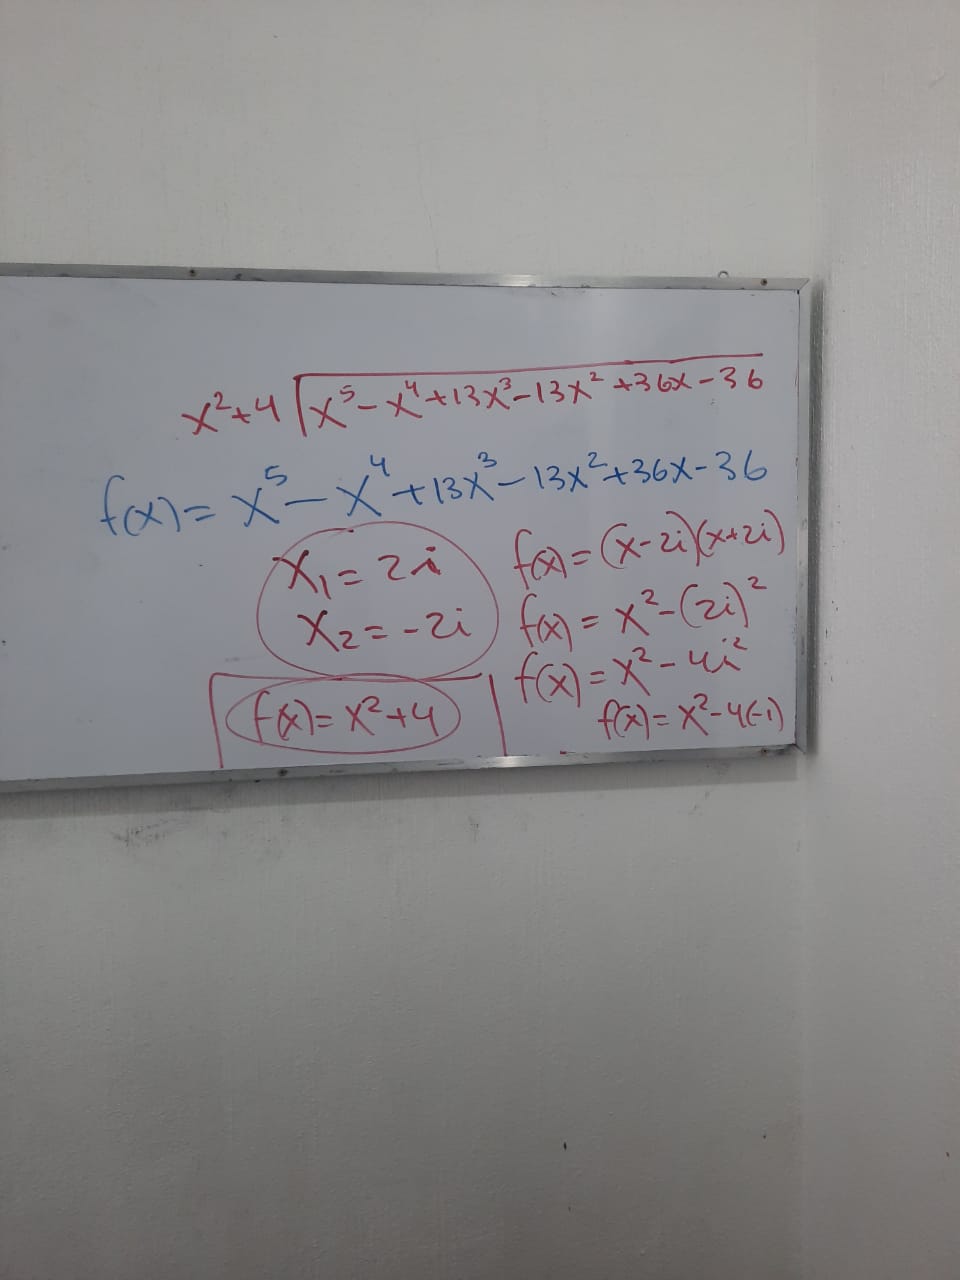 x²+4 √x⁵-x⁴+13x³-13x²+36x-36
f(x)= x⁵-x⁴+13x³-13x²+36x-36
x₁=2i
x₂=-2i
f(x)=x²+4
f(x)=(x-2i)(x+2i)
f(x)=x²-(2i)²
f(x)=x²-4i²
f(x)=x²-4(-1)